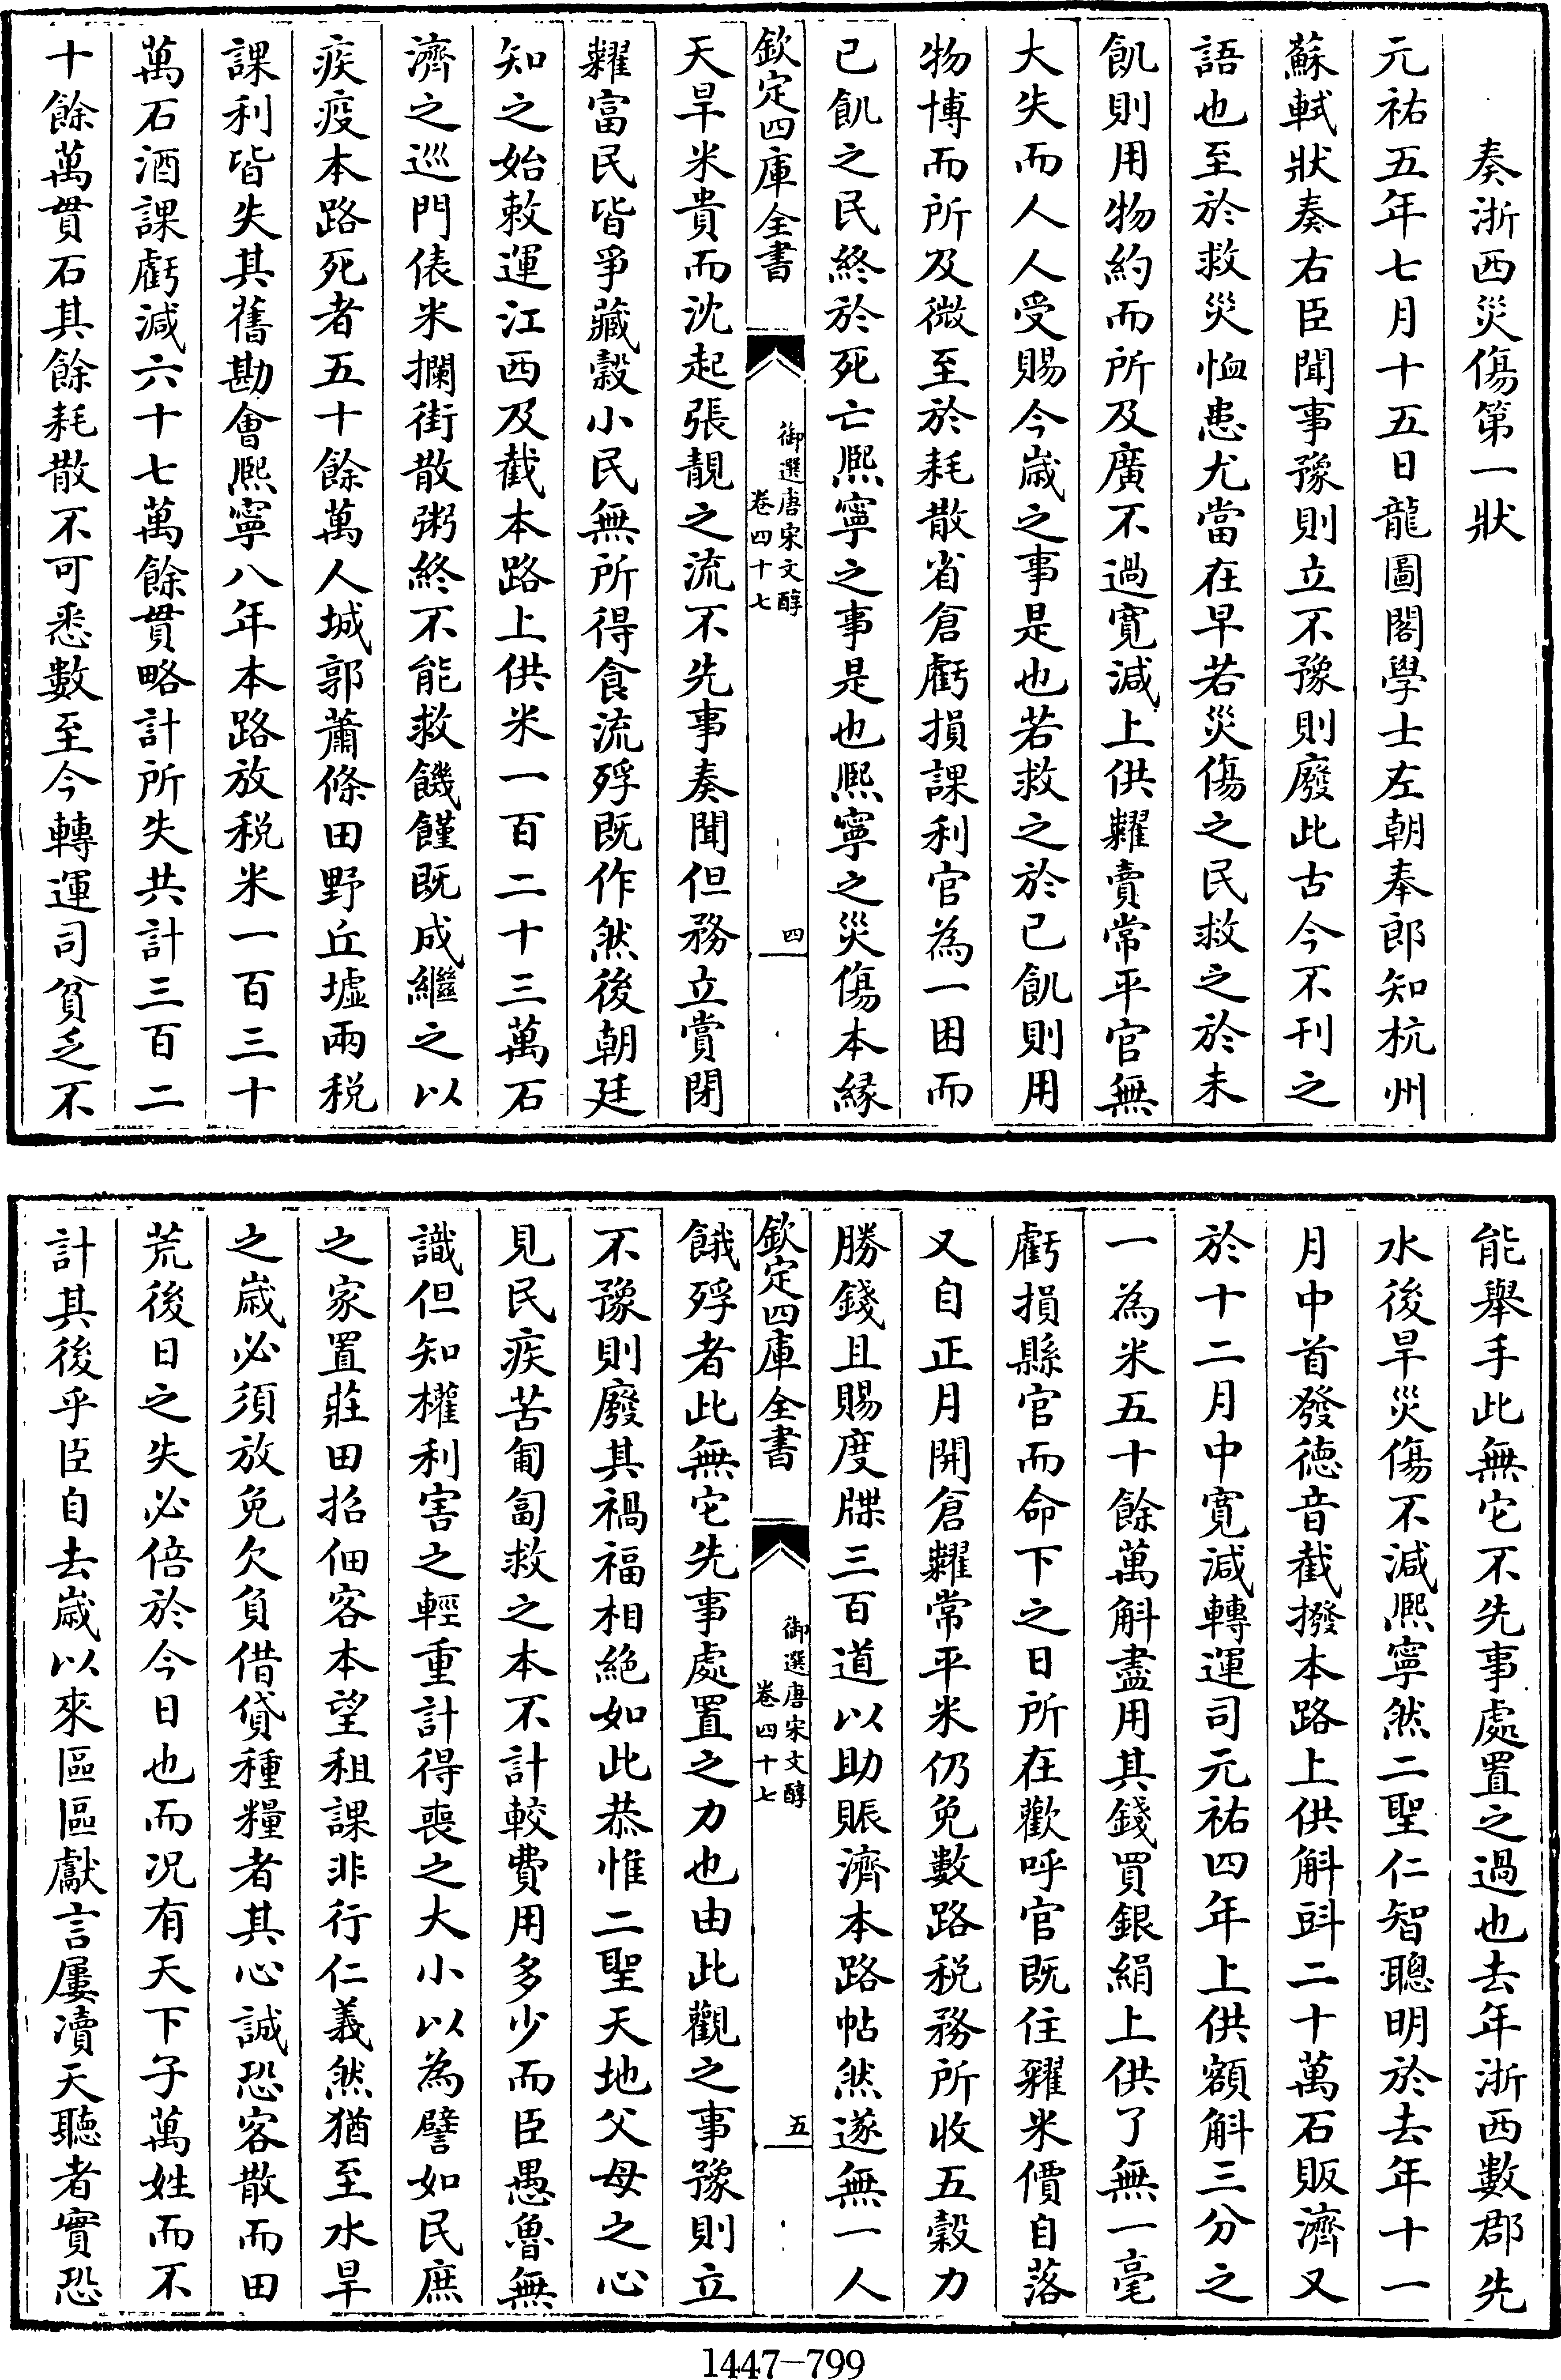 奏浙西災傷第一狀
元祐五年七月十五日龍圖閣學士左朝奉郎知杭州
蘇軾狀奏右臣聞事豫則立不豫則廢此古今不刊之
語也至於救災恤患尤當在早若災傷之民救之於未
飢則用物約而所及廣不過寛減上供糶賣常平官無
大失而人人受賜今歲之事是也若救之於已飢則用
物博而所及微至於耗散省倉虧損課利官為一困而
已飢之民終於死亡熙寧之事是也熙寧之災傷本緣
欽定四庫全書
御選唐宋文醇
卷四十七
四
天旱米貴而沈起張靚之流不先事奏聞但務立賞閉
糶富民皆爭藏穀小民無所得食流殍既作然後朝廷
知之始敕運江西及截本路上供米一百二十三萬石
濟之巡門俵米攔街散粥終不能救饑饉既成繼之以
疾疫本路死者五十餘萬人城郭蕭條田野丘墟兩稅
課利皆失其舊勘會熙寧八年本路放稅米一百三十
萬石酒課虧減六十七萬餘貫略計所失共計三百二
十餘萬貫石其餘耗散不可悉數至今轉運司貧乏不
能舉手此無它不先事處置之過也去年浙西數郡先
水後旱災傷不減熙寧然二聖仁智聰明於去年十一
月中首發德音截撥本路上供斛㪷二十萬石賑濟又
於十二月中寬減轉運司元祐四年上供額斛三分之
一為米五十餘萬斛盡用其錢買銀絹上供了無一毫
虧損縣官而命下之日所在歡呼官既住糴米價自落
又自正月開倉糶常平米仍免數路稅務所收五穀力
勝錢且賜度牒三百道以助賑濟本路帖然遂無一人
欽定四庫全書
御選唐宋文醇
卷四十七
五
餓殍者此無它先事處置之力也由此觀之事豫則立
不豫則廢其禍福相絕如此恭惟二聖天地父母之心
見民疾苦匍匐救之本不計較費用多少而臣愚魯無
識但知權利害之輕重計得喪之大小以為譬如民庶
之家置莊田招佃客本望租課非行仁義然猶至水旱
之歲必須放免欠負借貸種糧者其心誠恐客散而田
荒後日之失必倍於今日也而況有天下子萬姓而不
計其後乎臣自去歲以來區區獻言屢瀆天聽者實恐
1447-799